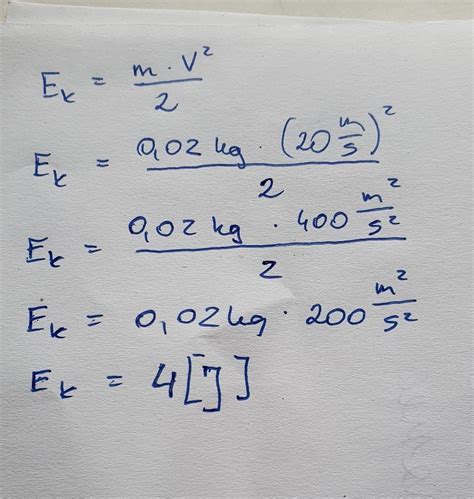 E_k = m · V² / 2
E_k = 0,02 kg · (20 m/s)² / 2
E_k = 0,02 kg · 400 m²/s² / 2
E_k = 0,02 kg · 200 m²/s²
E_k = 4 [J]